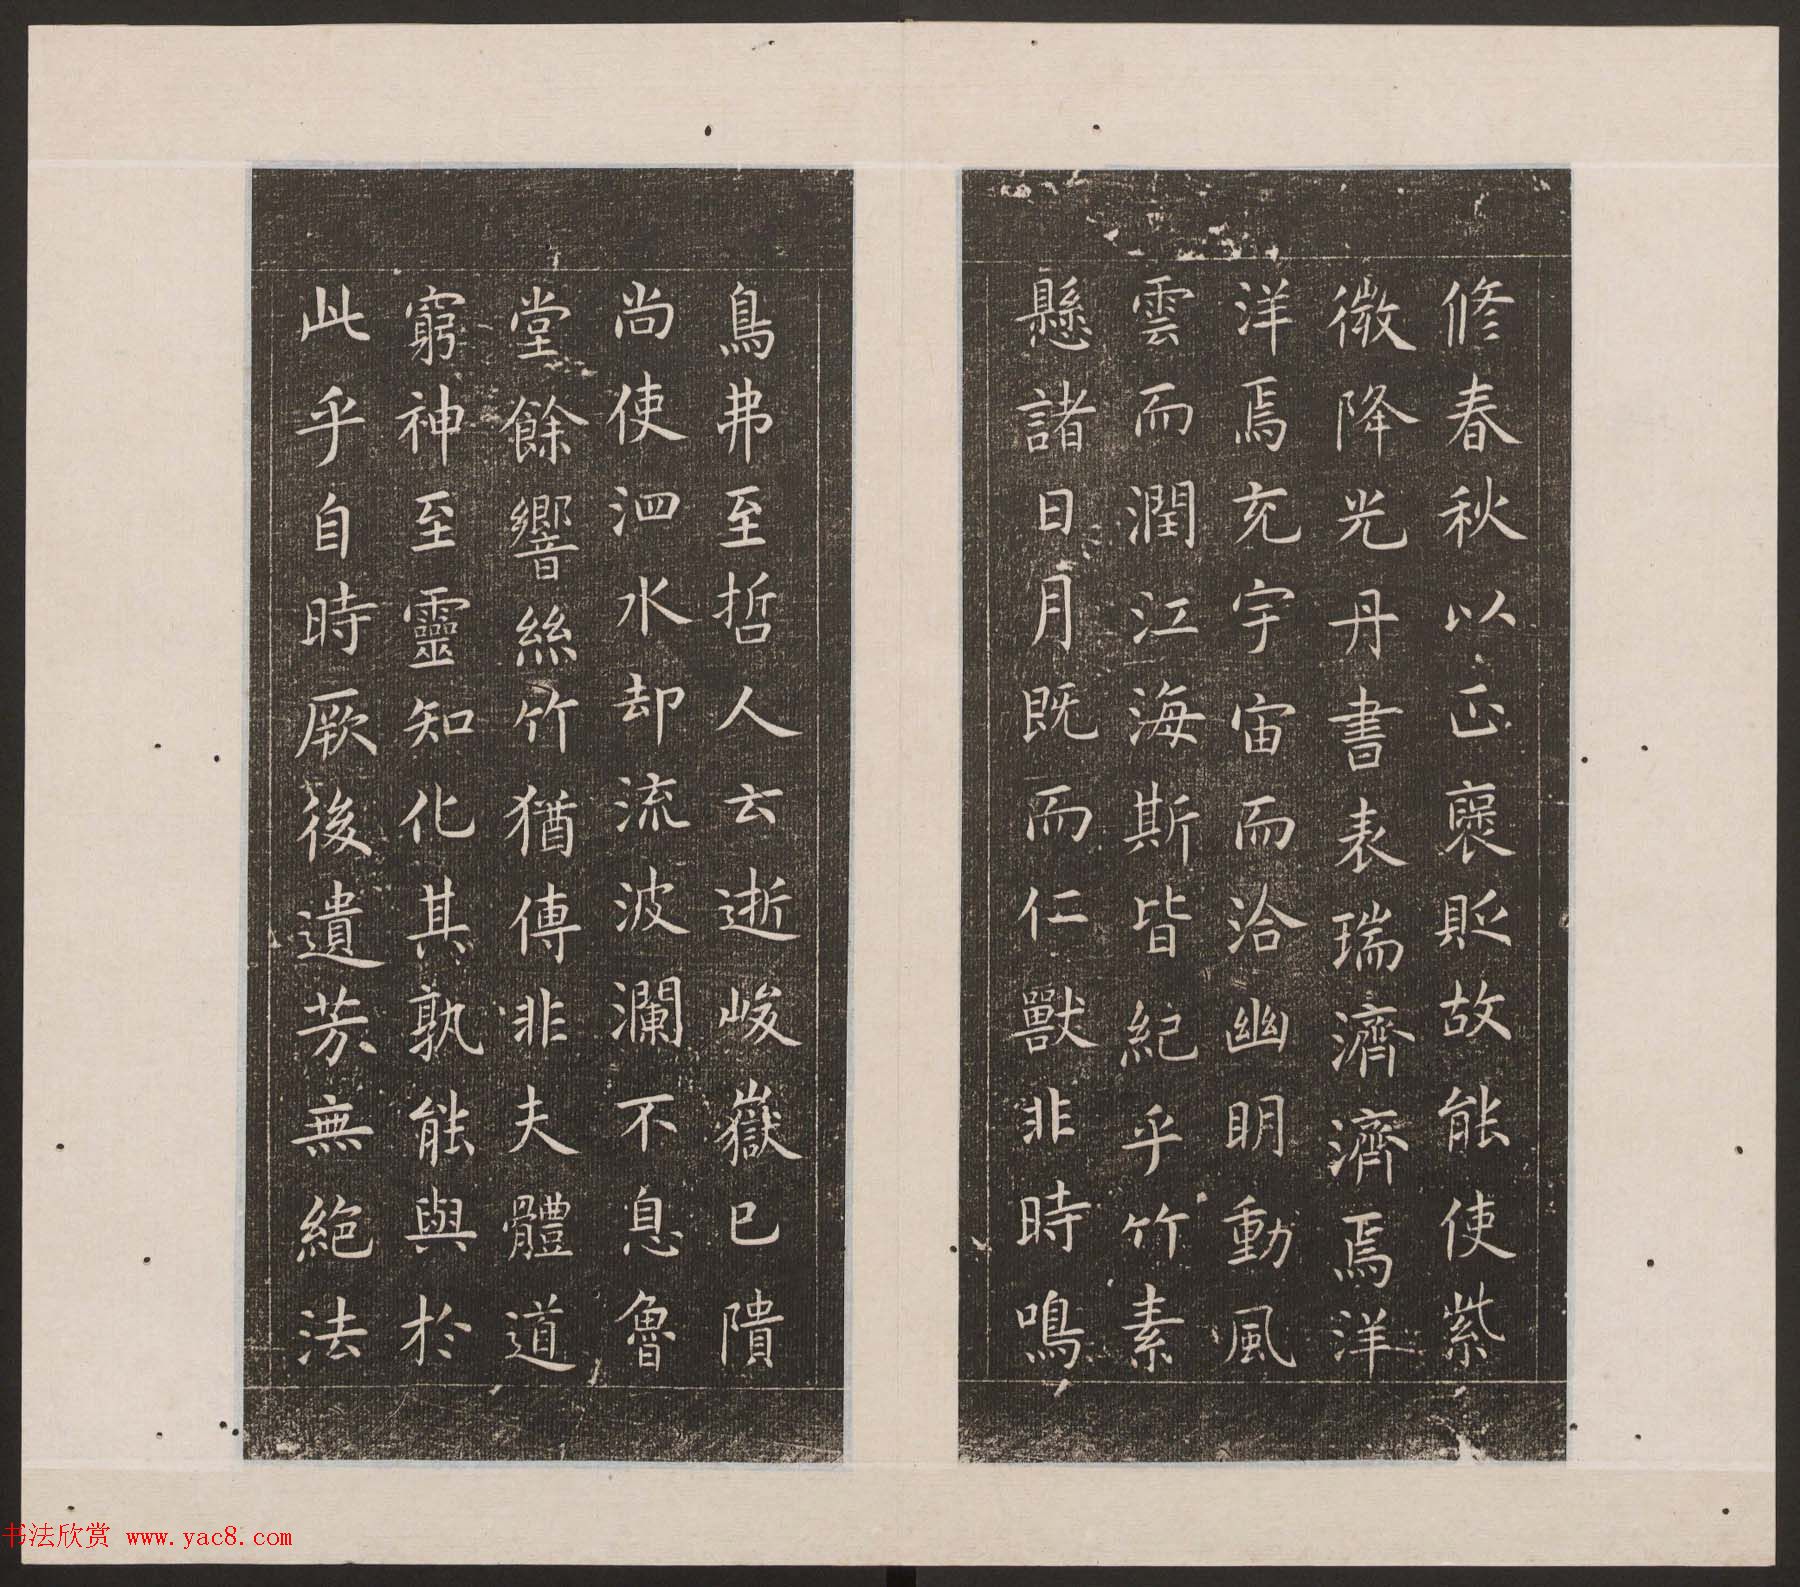 修春秋以正褒貶故能使紫
微降光丹書表瑞濟濟焉洋
洋焉充宇宙而洽幽明動風
雲而潤江海斯皆紀乎竹素
懸諸日月既而仁獸非時鳴
鳥弗至哲人云逝峻嶽已隤
尚使泗水却流波瀾不息魯
堂餘響絲竹猶傳非夫體道
窮神至靈知化其孰能與於
此乎自時厥後遺芳無絕法
书法欣赏 www.yac8.com